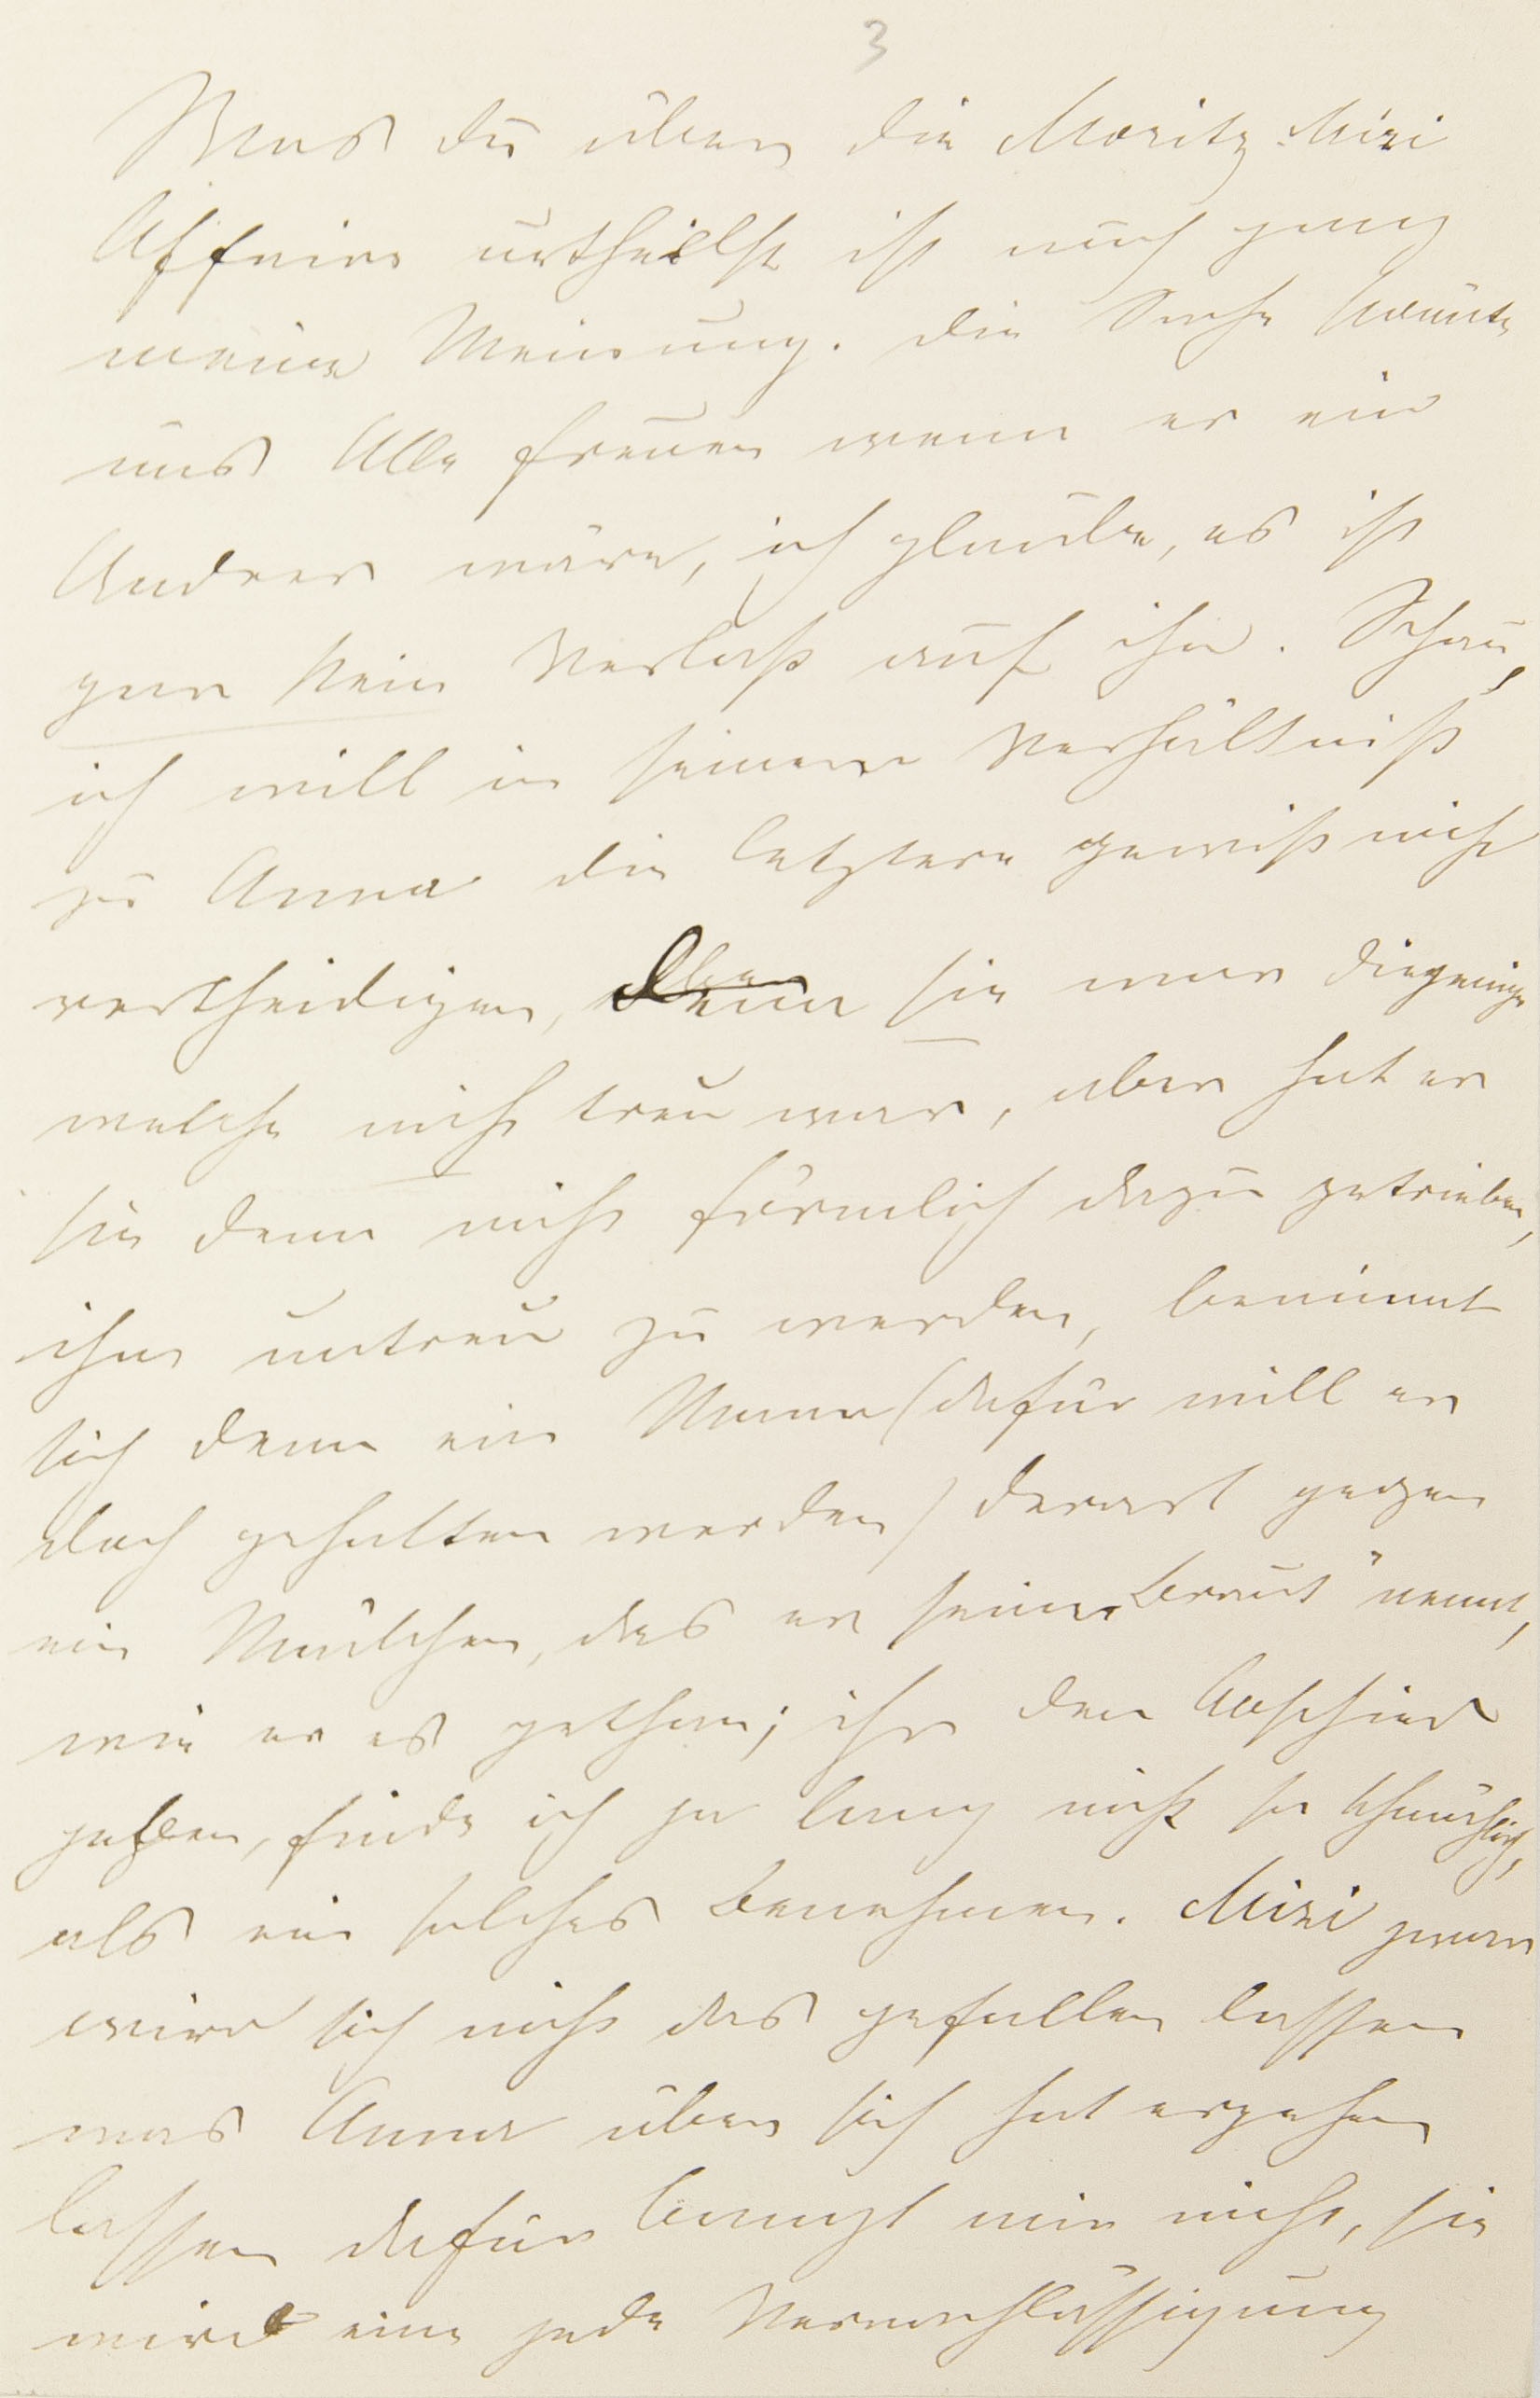 3
Was du über die Moritz-Mizi
Affaire urtheilst ist auch ganz
meine Meinung. die Sache könnte
uns Alle freuen wenn er ein
Andrer wäre, ich glaube, es ist
gar kein Verlaß auf ihn. Schau,
ich will in seinem Verhältniß
zu Anna die letztere gewiß nicht
vertheidigen, denn sie war diejenige
welche nicht treu war, aber hat er
sie denn nicht förmlich dazu getrieben,
ihm untreu zu werden, benimmt
sich denn ein Mann (dafür will er
doch gehalten werden) derart gegen
ein Mädchen, das er seine „Braut" nennt,
wie er es gethan; ihr den Abschied
geben, finde ich ja lang nicht so
als ein solches Benehmen. Mizi zwar
wird sich nicht das gefallen lassen
was Anna über sich hat ergehen
lassen dafür bangt mir nicht, sie
wird eine jede Vernachlässigung